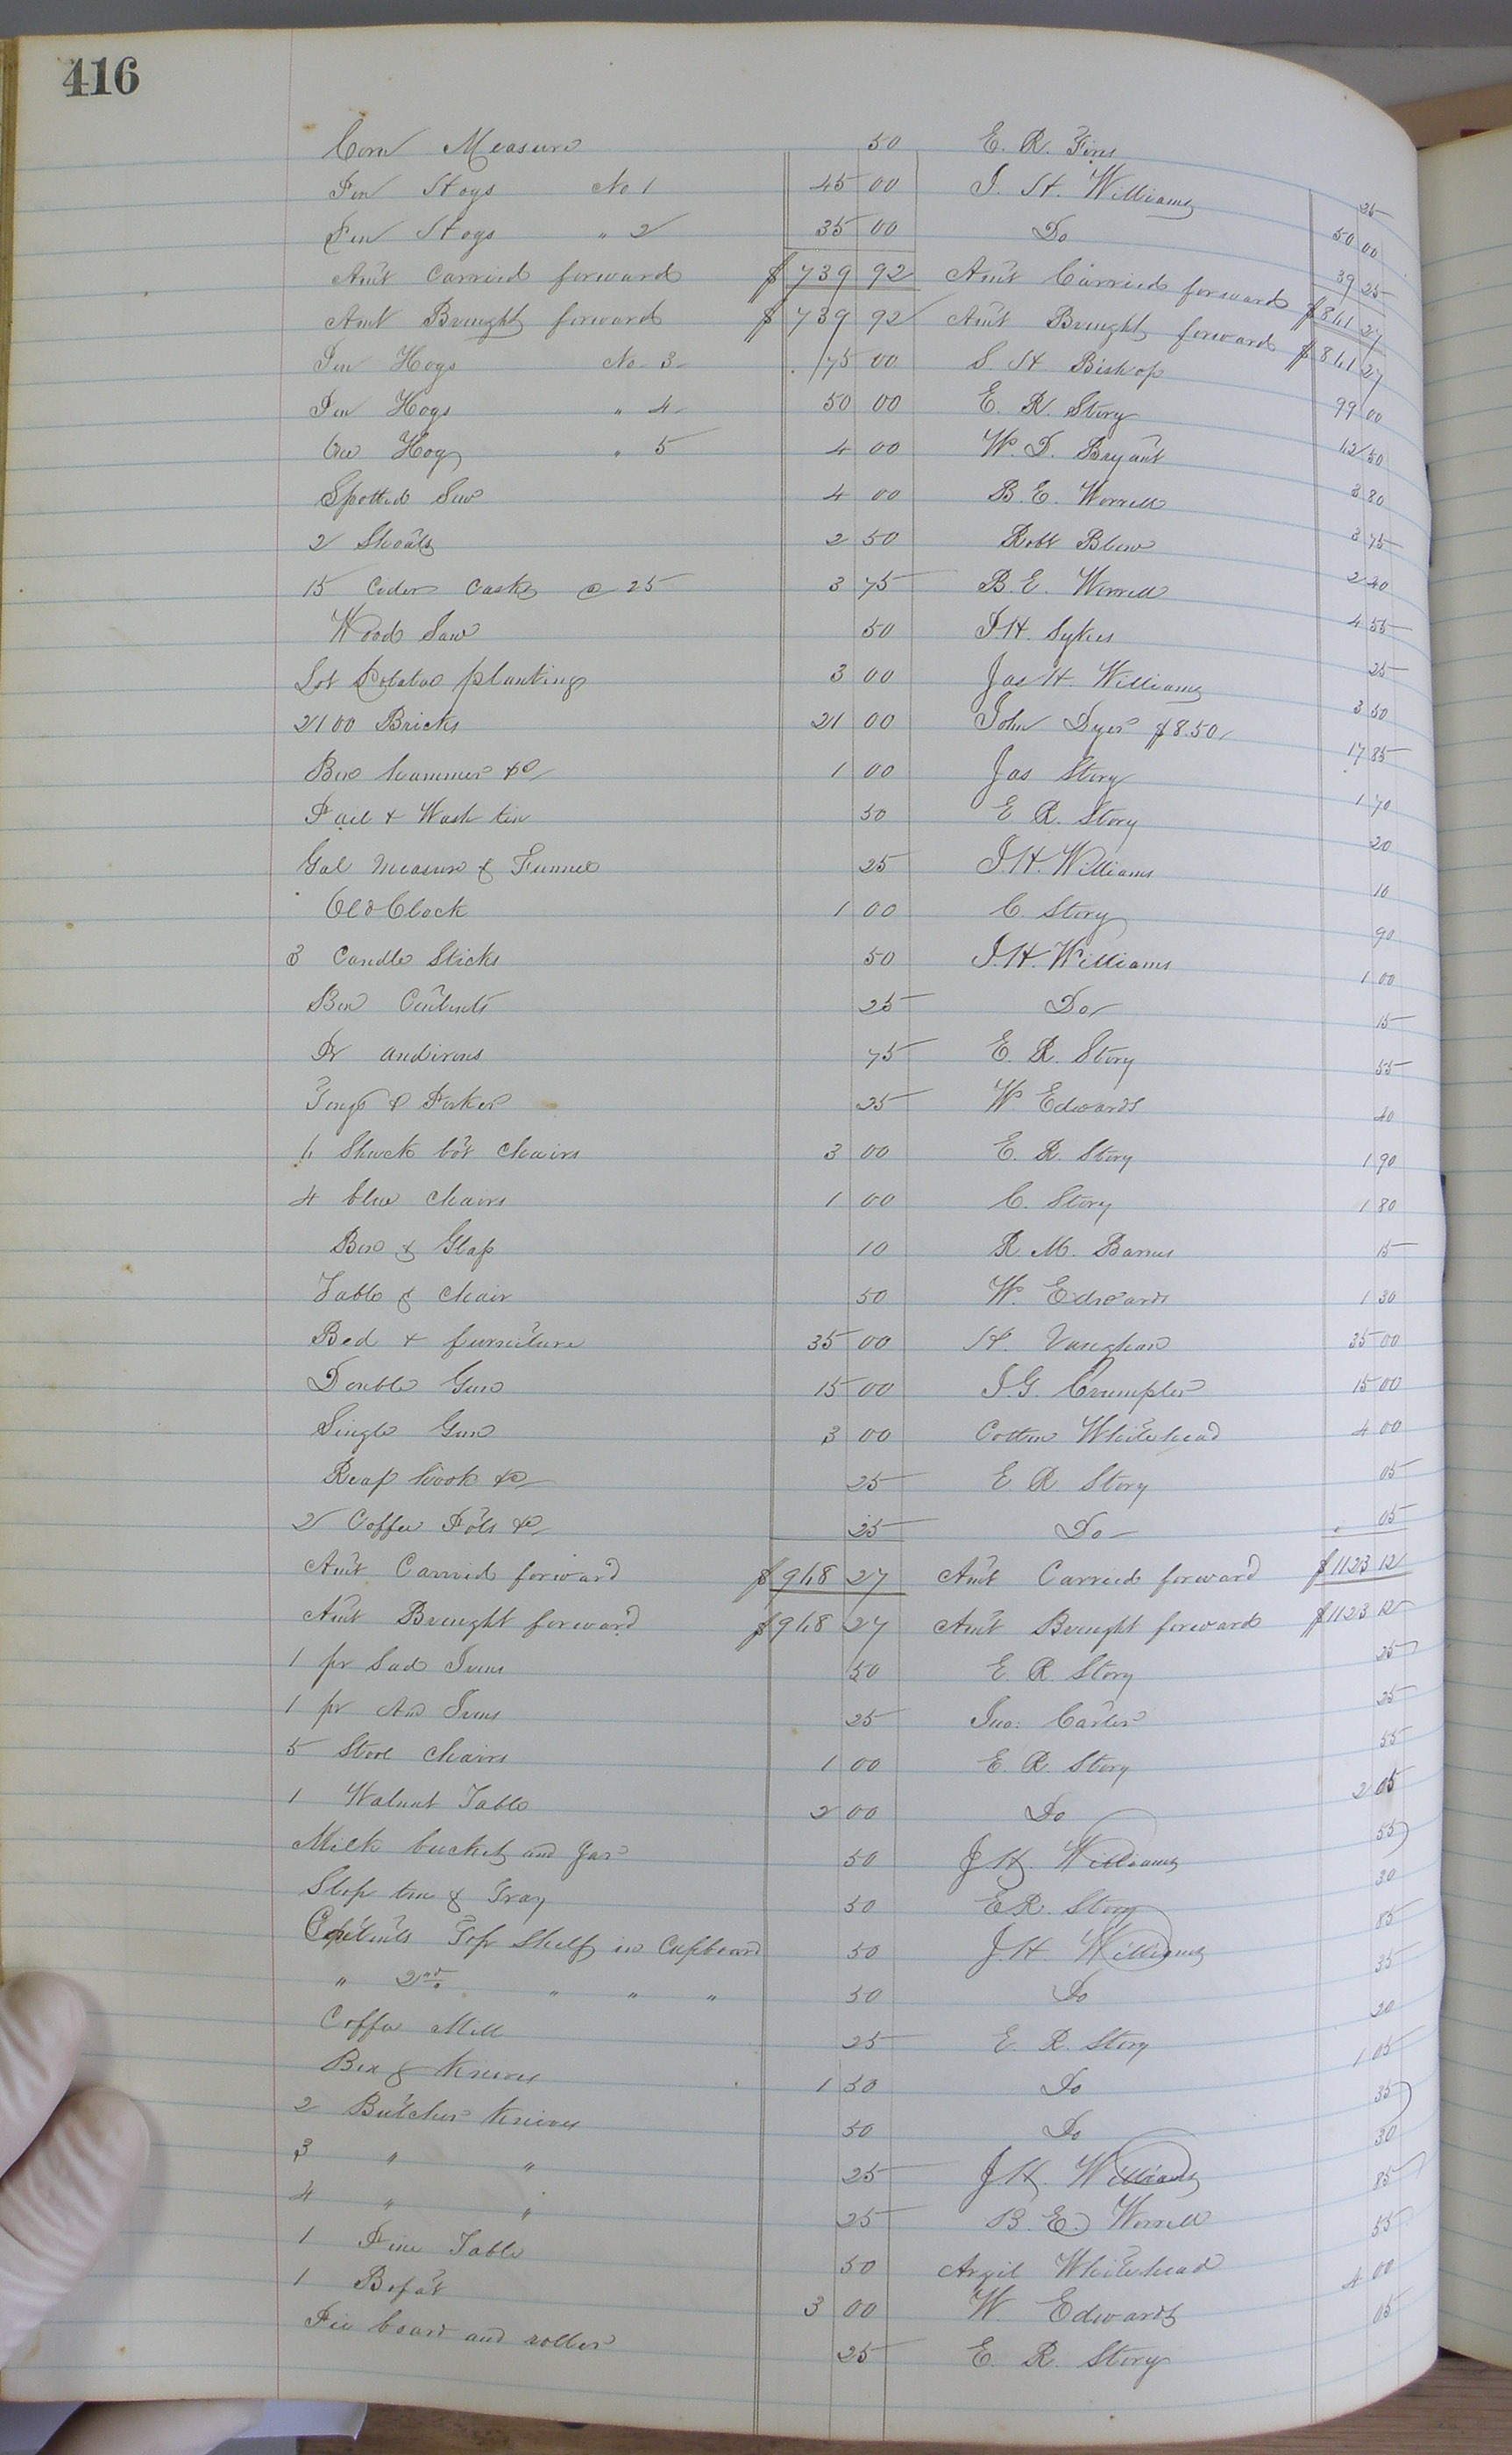 416
Corn Measure 50 E. R. Fires 25
Pen Hogs No 1 45 00 J. H. Williams 50 00
Pen Hogs " 2 35 00 Do 39 25
Am't Carried forward $739 92 Am't Carried forward $861 27
Am't Brought forward $739 92 Am't Brought forward $861 27
Pen Hogs No 3 75 00 S. H. Bishop 99 00
Pen Hogs " 4 50 00 E. R. Story 62 50
One Hog " 5 4 00 W. D. Bryant 3 80
Spotted Sow 4 00 B. E. Worrell 3 75
2 Shoats 2 50 Robt Blow 2 40
15 Cider Casks @ 25 3 75 B. E. Worrell 4 55
Wood Saw 50 J. H. Sykes 25
Lot Potatoe plantings 3 00 Jas H. Williams 3 50
2100 Bricks 21 00 John Dyer $8.50 17 85
Box hammer &c 1 00 Jas Story 1 70
Pail & Wash tin 50 E. R. Story 20
Gal Measure & Funnel 25 J. H. Williams 10
Old Clock 1 00 C. Story 90
3 Candle Sticks 50 J. H. Williams 1 00
Box Contents 25 Do 15
Pr andirons 75 E. R. Story 55
Tongs & Poker 25 W. Edwards 40
6 Shuck bot Chairs 3 00 E. R. Story 1 90
4 blue Chairs 1 00 C. Story 1 80
Box & Glass 10 R. M. Barnes 15
Table & Chair 50 W. Edwards 1 30
Bed & furniture 35 00 H. Vaughan 35 00
Double Gun 15 00 J. G. Crumpler 15 00
Single Gun 3 00 Cotton Whitehead 4 00
Reap hook &c 25 E. R. Story 05
2 Coffee Pots &c 25 Do 05
Am't Carried forward $968 27 Am't Carried forward $1123 12
Am't Brought forward $968 27 Am't Brought forward $1123 12
1 pr Sad Irons 50 E. R. Story 25
1 pr And Irons 25 Jno. Carter 25
5 Stool Chairs 1 00 E. R. Story 55
1 Walnut Table 2 00 Do 2 05
Milk bucket and Jar 50 J. H. Williams 55
Slop tin & Tray 50 E. R. Story 30
Contents Top Shelf in Cupboard 50 J. H. Williams 85
" 2nd " " " 50 Do 35
Coffee Mill 25 E. R. Story 20
Box & Knives 1 50 Do 1 05
2 Butcher Knives 50 Do 35
3 " " 25 J. H. Williams 30
4 " " 25 B. E. Worrell 85
1 Pine Table 50 Argil Whitehead 55
1 Bofat 3 00 W. Edwards 4 00
Pie board and roller 25 E. R. Story 05